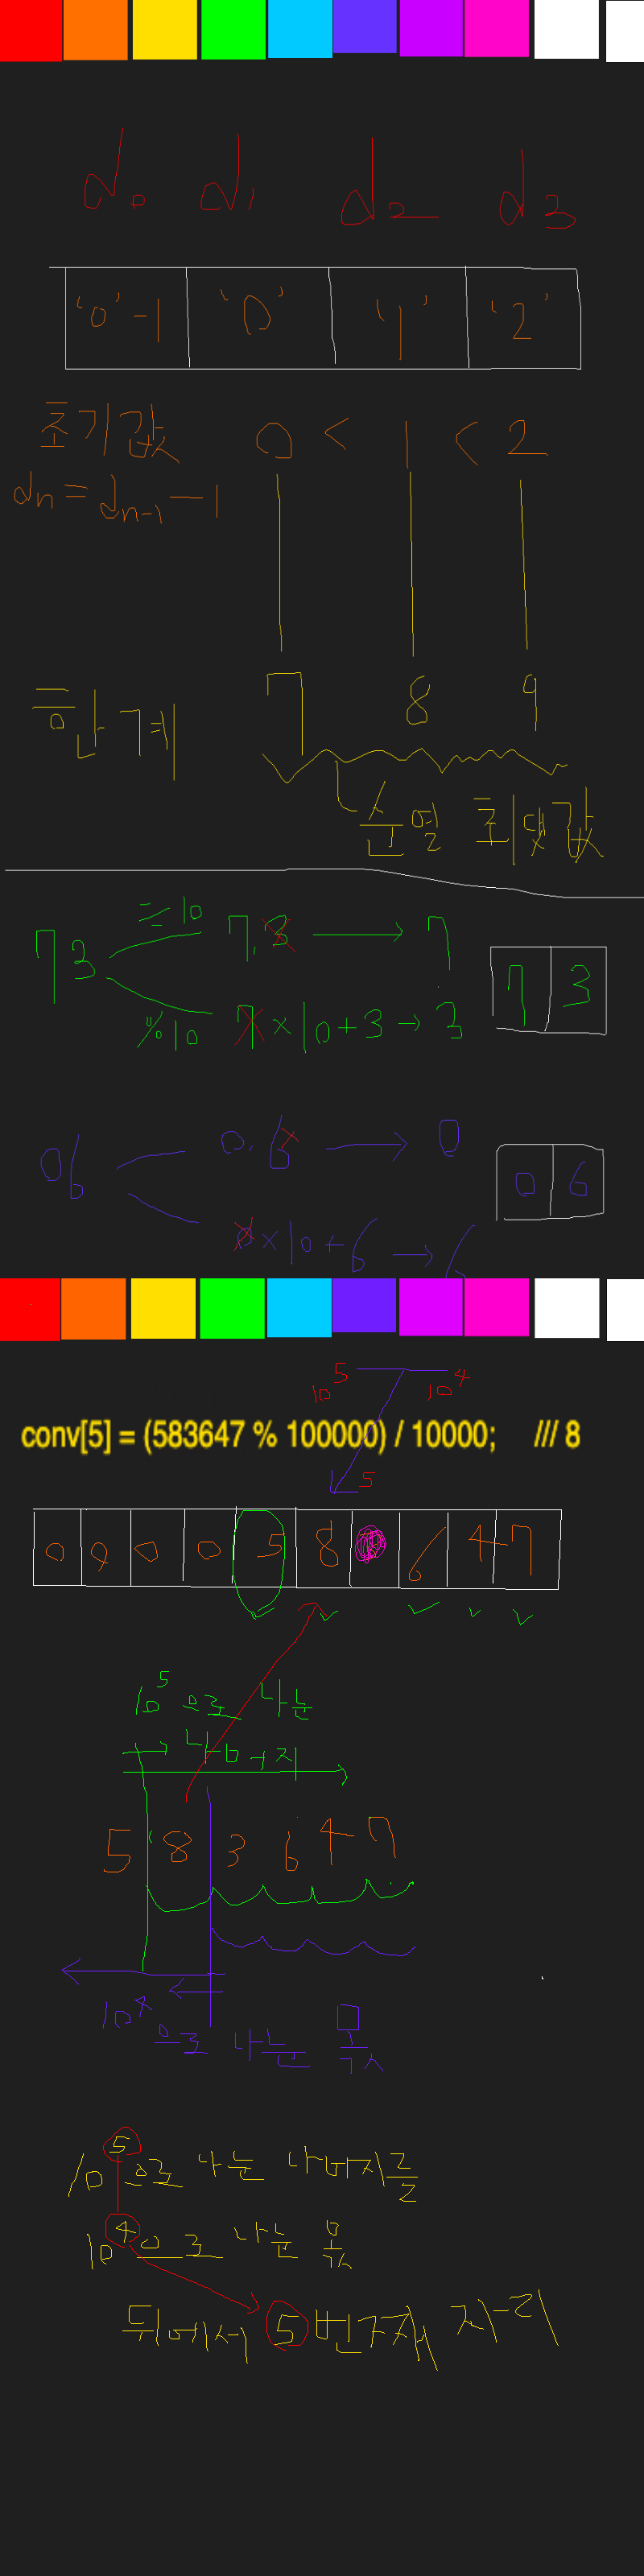 d0 d1 d2 d3
'0'-1 '0' '1' '2'
초기값 0 < 1 < 2
dn = dn-1 - 1
한계 7 8 9
순열 최댓값
73 ÷10 7.3 → 7
%10 7×10+3 → 3
7 3
06 0.6 → 0
0×10+6 → 6
0 6
10^5 10^4
conv[5] = (583647 % 100000) / 10000; /// 8
5
0 0 0 0 5 8 6 4 7
10^5 으로 나눈
→ 나머지
5 8 3 6 4 7
10^4 으로 나눈 몫
10^5 으로 나눈 나머지를
10^4 으로 나눈 몫
뒤에서 5번째 자리